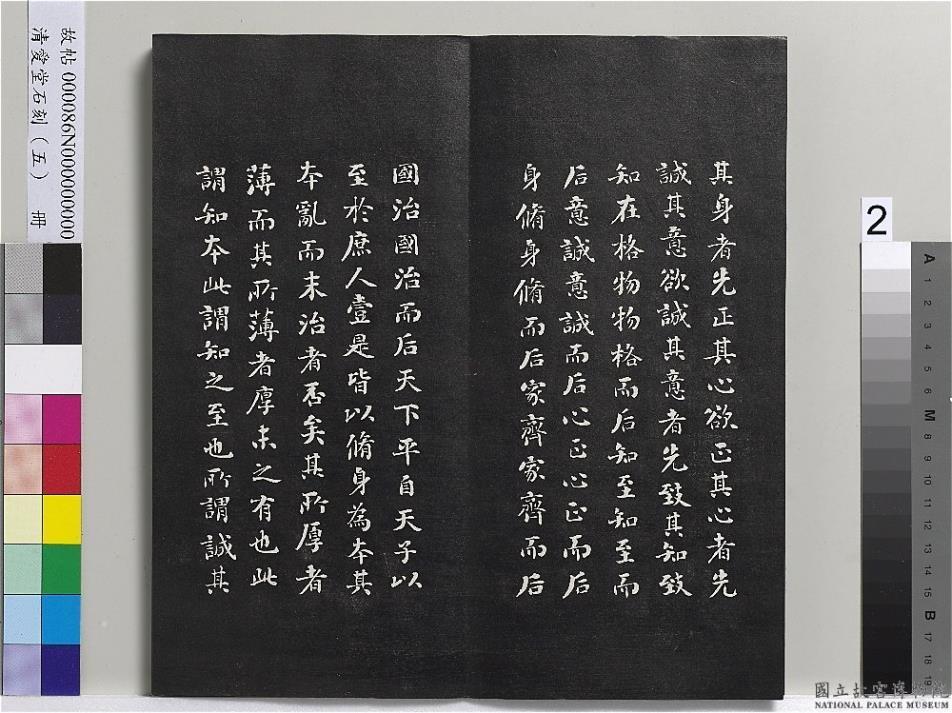 其身者先正其心欲正其心者先
誠其意欲誠其意者先致其知致
知在格物物格而后知至知至而
后意誠意誠而后心正心正而后
身脩身脩而后家齊家齊而后
國治國治而后天下平自天子以
至於庶人壹是皆以脩身為本其
本亂而末治者否矣其所厚者
薄而其所薄者厚未之有也此
謂知本此謂知之至也所謂誠其
故帖 000086N000000000
清愛堂石刻(五) 冊
2
A 1 2 3 4 5 6 M 8 9 10 11 12 13 14 15 B 17 18 19
國立故宮博物院
NATIONAL PALACE MUSEUM